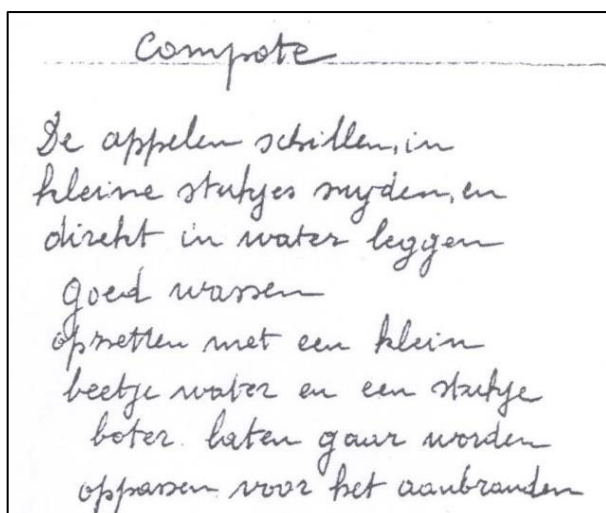 Compote
De appelen schillen, in
kleine stukjes snyden, en
direkt in water leggen
goed wassen
opzetten met een klein
beetje water en een stukje
boter. laten gaar worden
oppassen voor het aanbranden